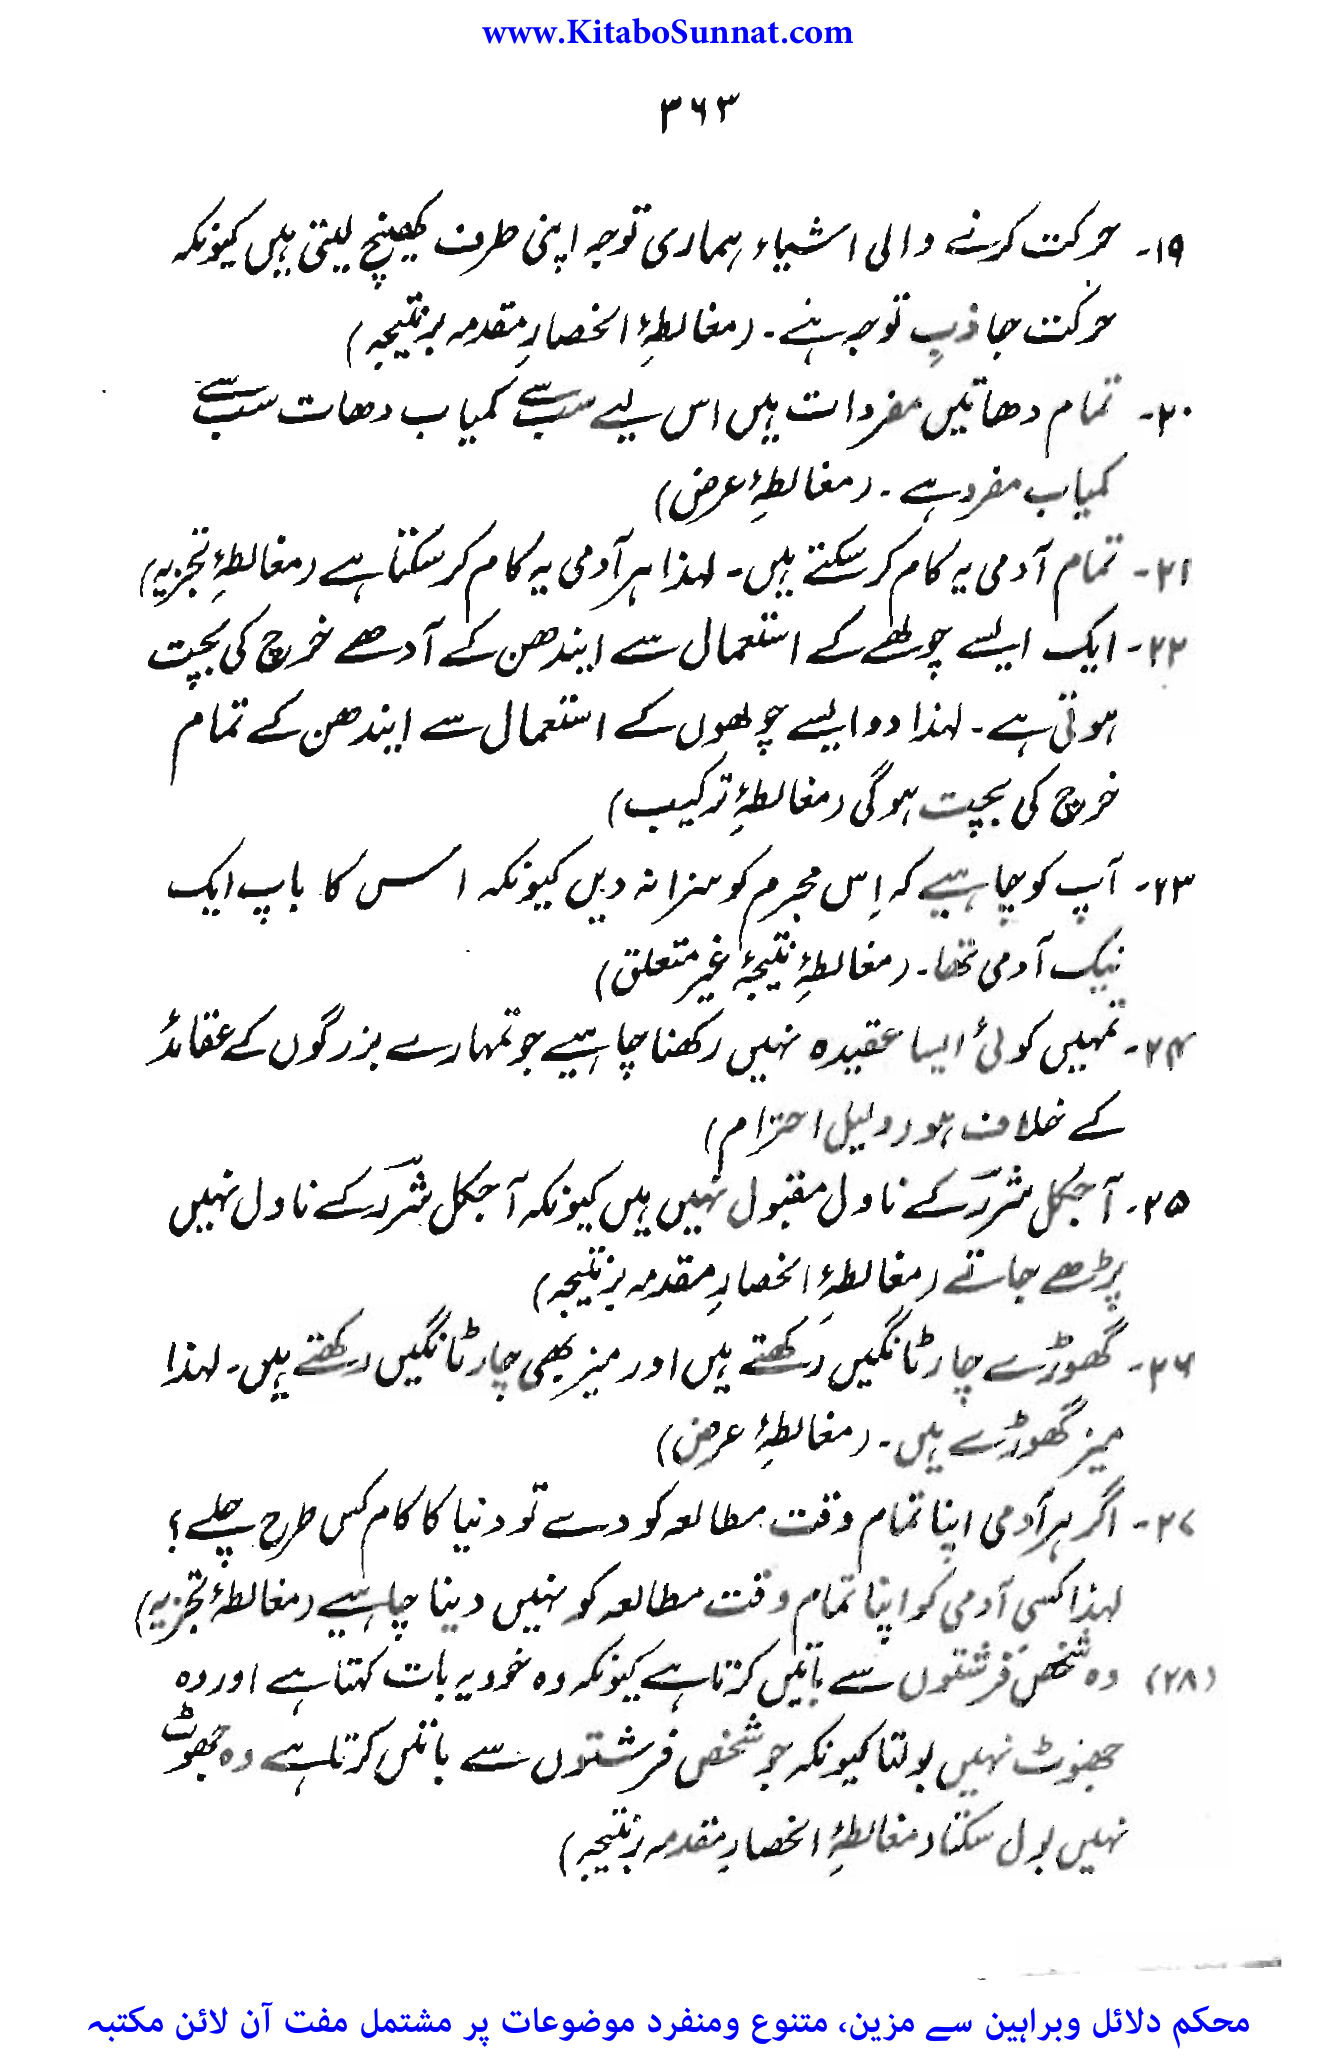 www.KitaboSunnat.com
۳۶۳
۱۹۔ حرکت کرنے والی اشیاء ہماری توجہ اپنی طرف کھینچ لیتی ہیں کیونکہ
حرکت جاذبِ توجہ ہے۔ (مغالطۂ انحصارِ مقدمہ بر نتیجہ)
۲۰۔ تمام دھاتیں مفردات ہیں اس لیے سب سے کمیاب دھات سب سے
کمیاب مفرد ہے۔ (مغالطۂ عرض)
۲۱۔ تمام آدمی یہ کام کر سکتے ہیں۔ لہذا ہر آدمی یہ کام کر سکتا ہے (مغالطۂ تجزیہ)
۲۲۔ ایک ایسے چولھے کے استعمال سے ایندھن کے آدھے خرچ کی بچت
ہوتی ہے۔ لہذا دو ایسے چولھوں کے استعمال سے ایندھن کے تمام
خرچ کی بچت ہوگی (مغالطۂ ترکیب)
۲۳۔ آپ کو چاہیے کہ اِس مجرم کو سزا نہ دیں کیونکہ اس کا باپ ایک
نیک آدمی تھا۔ (مغالطۂ نتیجۂ غیر متعلق)
۲۴۔ تمہیں کوئی ایسا عقیدہ نہیں رکھنا چاہیے جو تمہارے بزرگوں کے عقائد
کے خلاف ہو (دلیل احترام)
۲۵۔ آجکل شرر کے ناول مقبول نہیں ہیں کیونکہ آجکل شرر کے ناول نہیں
پڑھے جاتے (مغالطۂ انحصارِ مقدمہ بر نتیجہ)
۲۶۔ گھوڑے چار ٹانگیں رکھتے ہیں اور میز بھی چار ٹانگیں رکھتے ہیں۔ لہذا
میز گھوڑے ہیں۔ (مغالطۂ عرض)
۲۷۔ اگر ہر آدمی اپنا تمام وقت مطالعہ کو دے تو دنیا کا کام کس طرح چلے؟
لہذا کسی آدمی کو اپنا تمام وقت مطالعہ کو نہیں دینا چاہیے (مغالطۂ تجزیہ)
(۲۸) وہ شخص فرشتوں سے باتیں کرتا ہے کیونکہ وہ خود یہ بات کہتا ہے اور وہ
جھوٹ نہیں بولتا کیونکہ جو شخص فرشتوں سے باتیں کرتا ہے وہ جھوٹ
نہیں بول سکتا (مغالطۂ انحصارِ مقدمہ بر نتیجہ)
محکم دلائل وبراہین سے مزین، متنوع ومنفرد موضوعات پر مشتمل مفت آن لائن مکتبہ